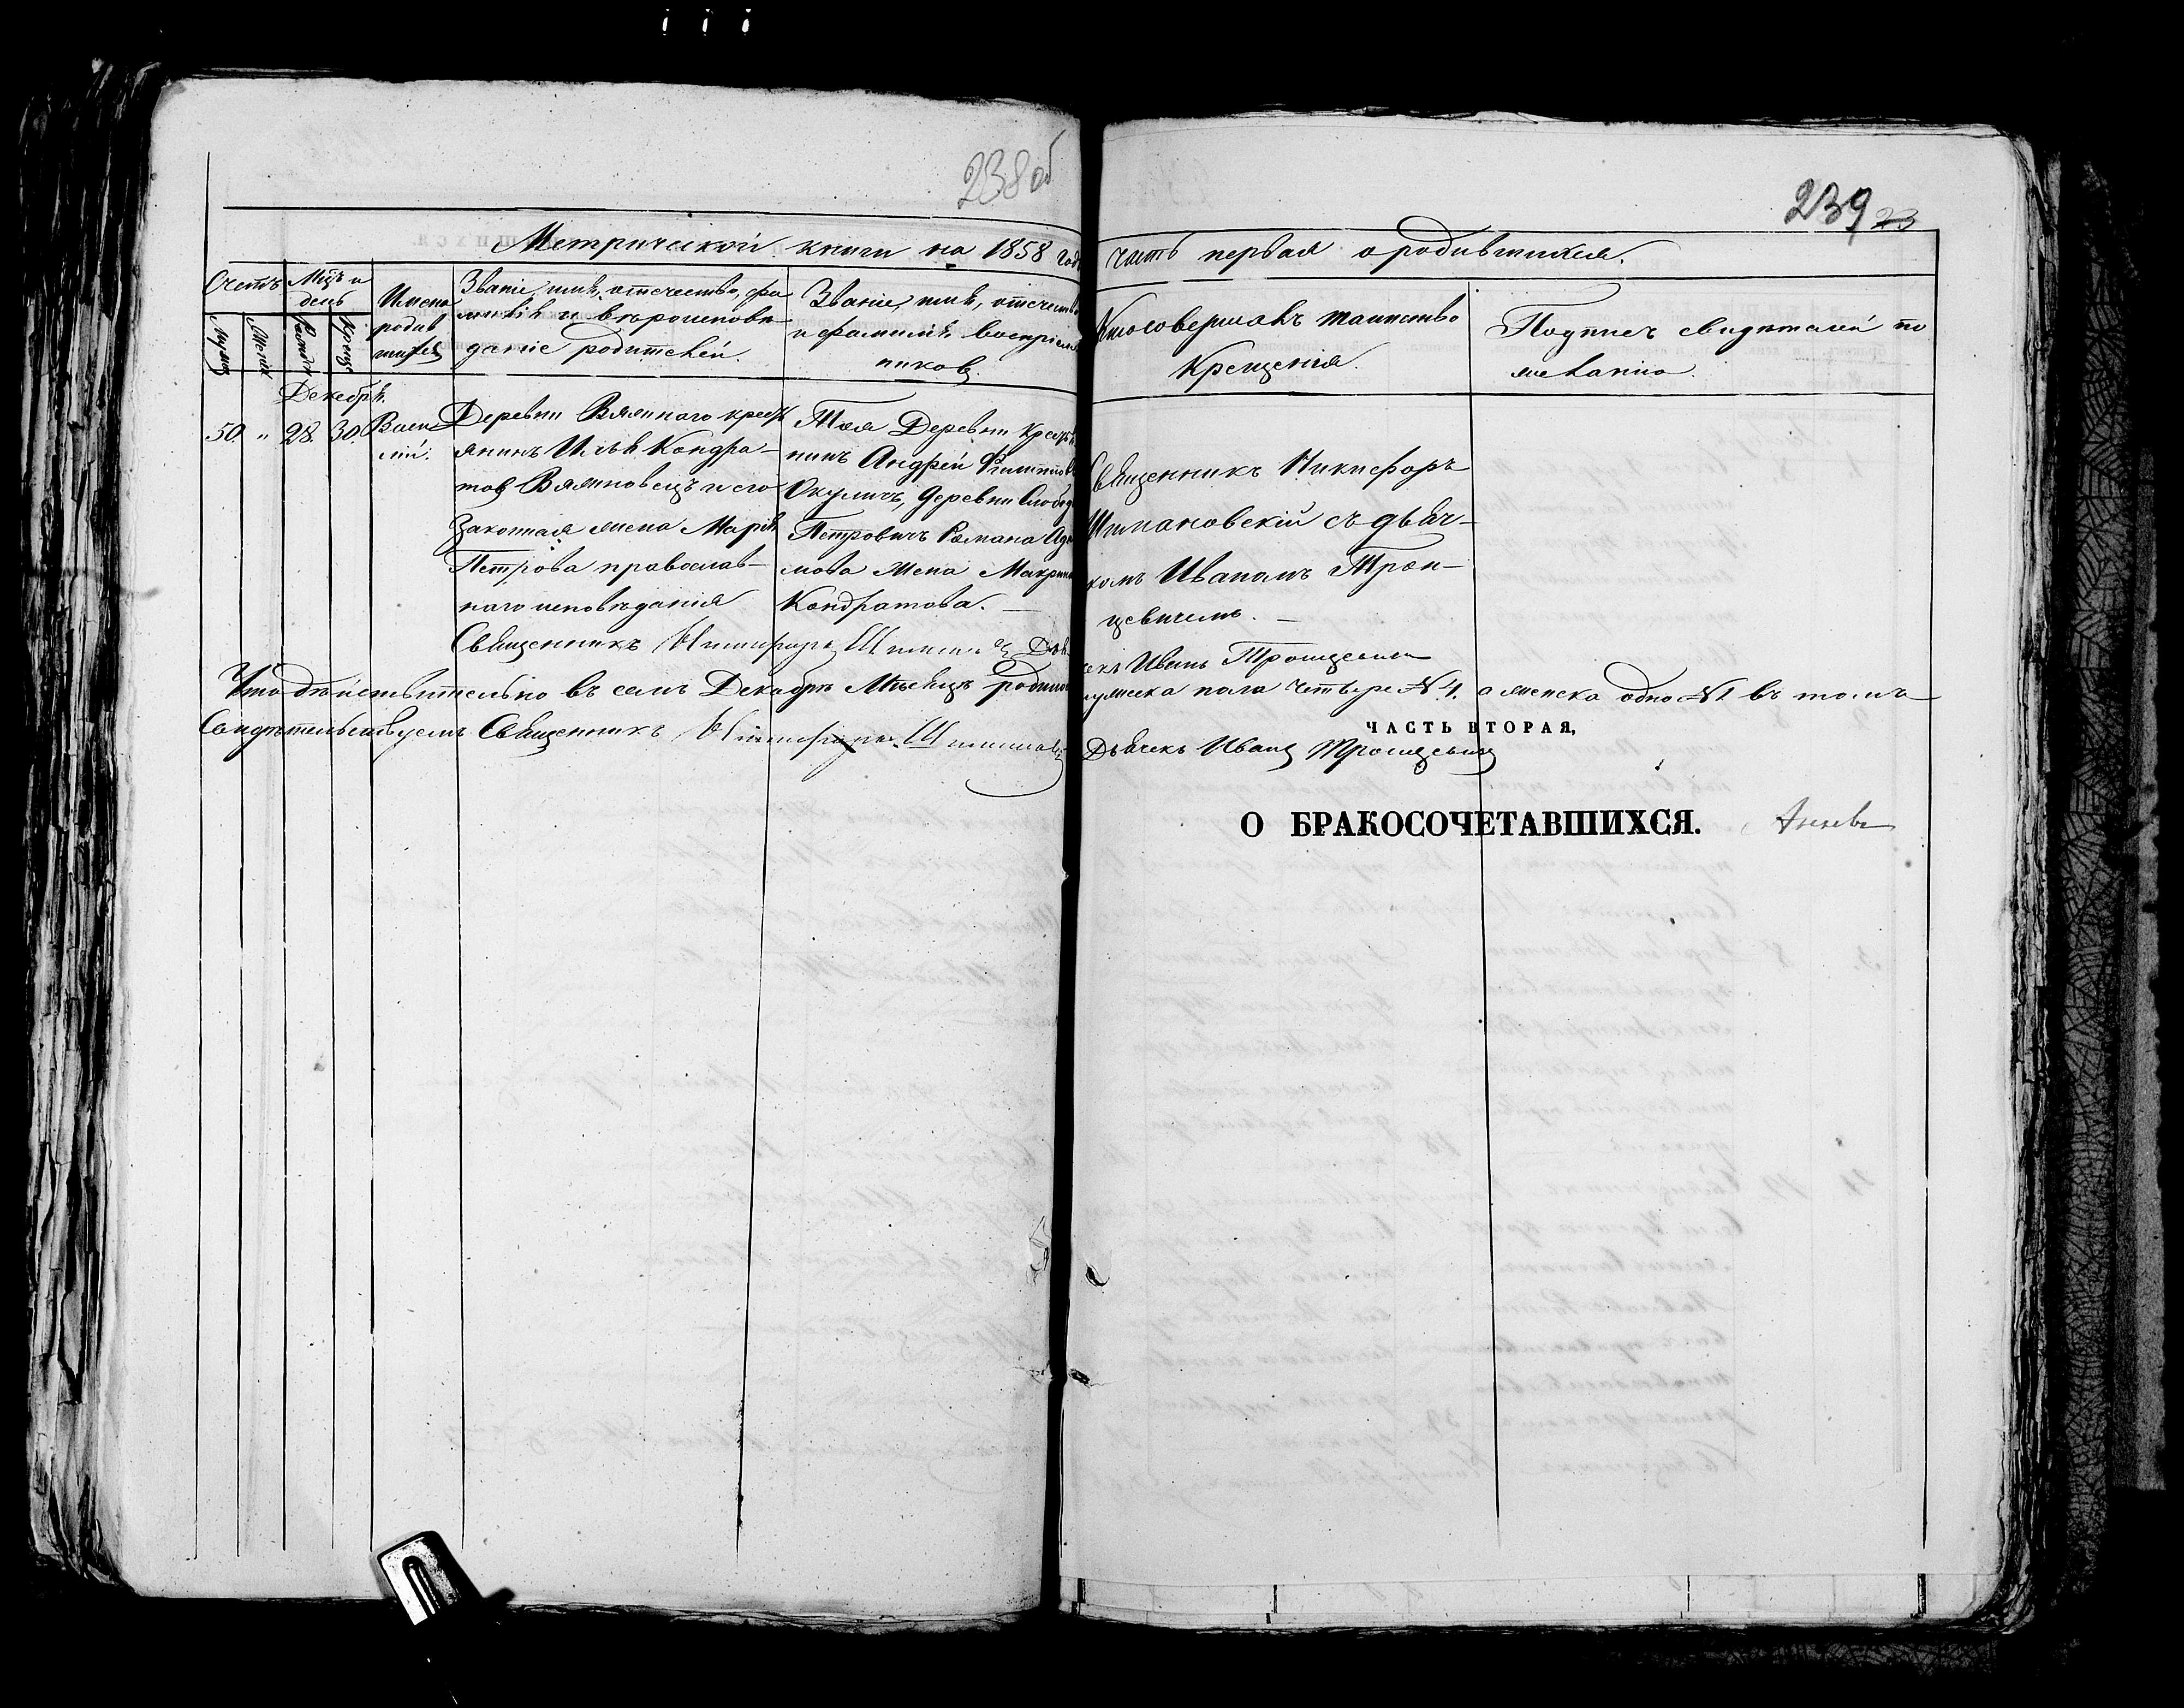 238 об
239 23
Метрической книги на 1858 годъ
часть первая о родившихся.
Счетъ
Мцъ и день
Имена родив шихся
Званіе, имя, отечество, фа
милія и вѣроисповѣ
даніе родителей.
Званіе, имя, отечество
и фамилія воспріем
никовъ.
Кто совершалъ таинство
Крещенія.
Подпись свидѣтелей по
желанію.
Декабрь
50. " 28. 30. Васи
лій.
Деревни Вялинаго крест
янинъ Илья Кондра-
товъ Вялиновецъ и его
Законная жена Марія
Петрова православ-
наго исповѣданія
Тоя Деревни Крестья
нинъ Андрей Филиппов
Окуличъ, деревни Слобод
Петровичъ Романа Ада
мова жена Макрина
Кондратова.
Священникъ Никифоръ
Шимановскій съ дьяч-
комъ Иваномъ Трон-
цевичемъ.
Священникъ Никифоръ
Иванъ
Что дѣйствительно въ семъ Декабрѣ Мѣсяцѣ родилось
мужеска пола четыре № 4. а женска одно № 1 въ томъ
Свидѣтельствуемъ Священникъ Никифоръ
Дьячекъ Иванъ
ЧАСТЬ ВТОРАЯ,
О БРАКОСОЧЕТАВШИХСЯ.